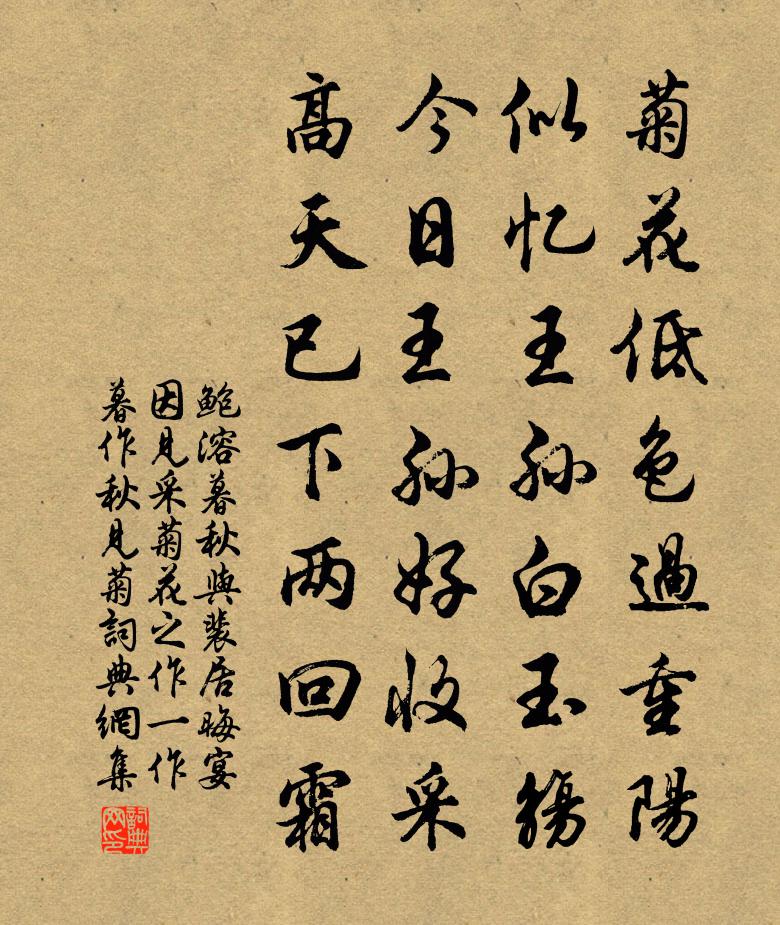 菊花低色過重陽
似忆王孙白玉觴
今日王孙好收采
高天已下两回霜
鲍溶暮秋與裴居晦宴
因见采菊花之作一作
暮作秋见菊詞典網集
詞典网印